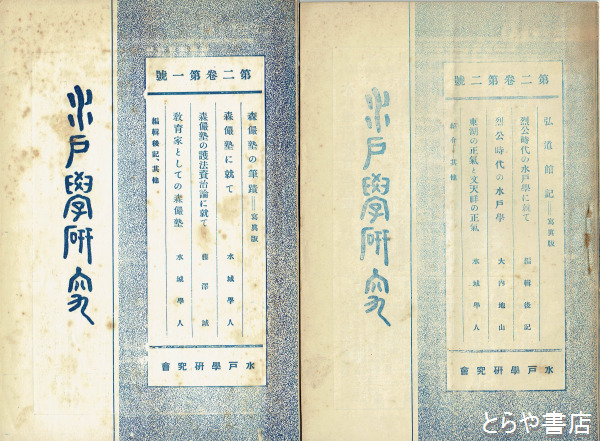 水戸學研究
第二卷第一號
森儼塾の筆蹟＝寫眞版
森儼塾に就て 水城學人
森儼塾の護法資治論に就て 雨澤誠
教育家としての森儼塾 水城學人
編輯後記、其他
水戸學研究會
水戸學研究
第二卷第二號
弘道館記＝寫眞版
烈公時代の水戸學に就て 編輯後記
烈公時代の水戸學 大内地山
東湖の正氣と文天祥の正氣 水城學人
紹介・其他
水戸學研究會
とらや書店